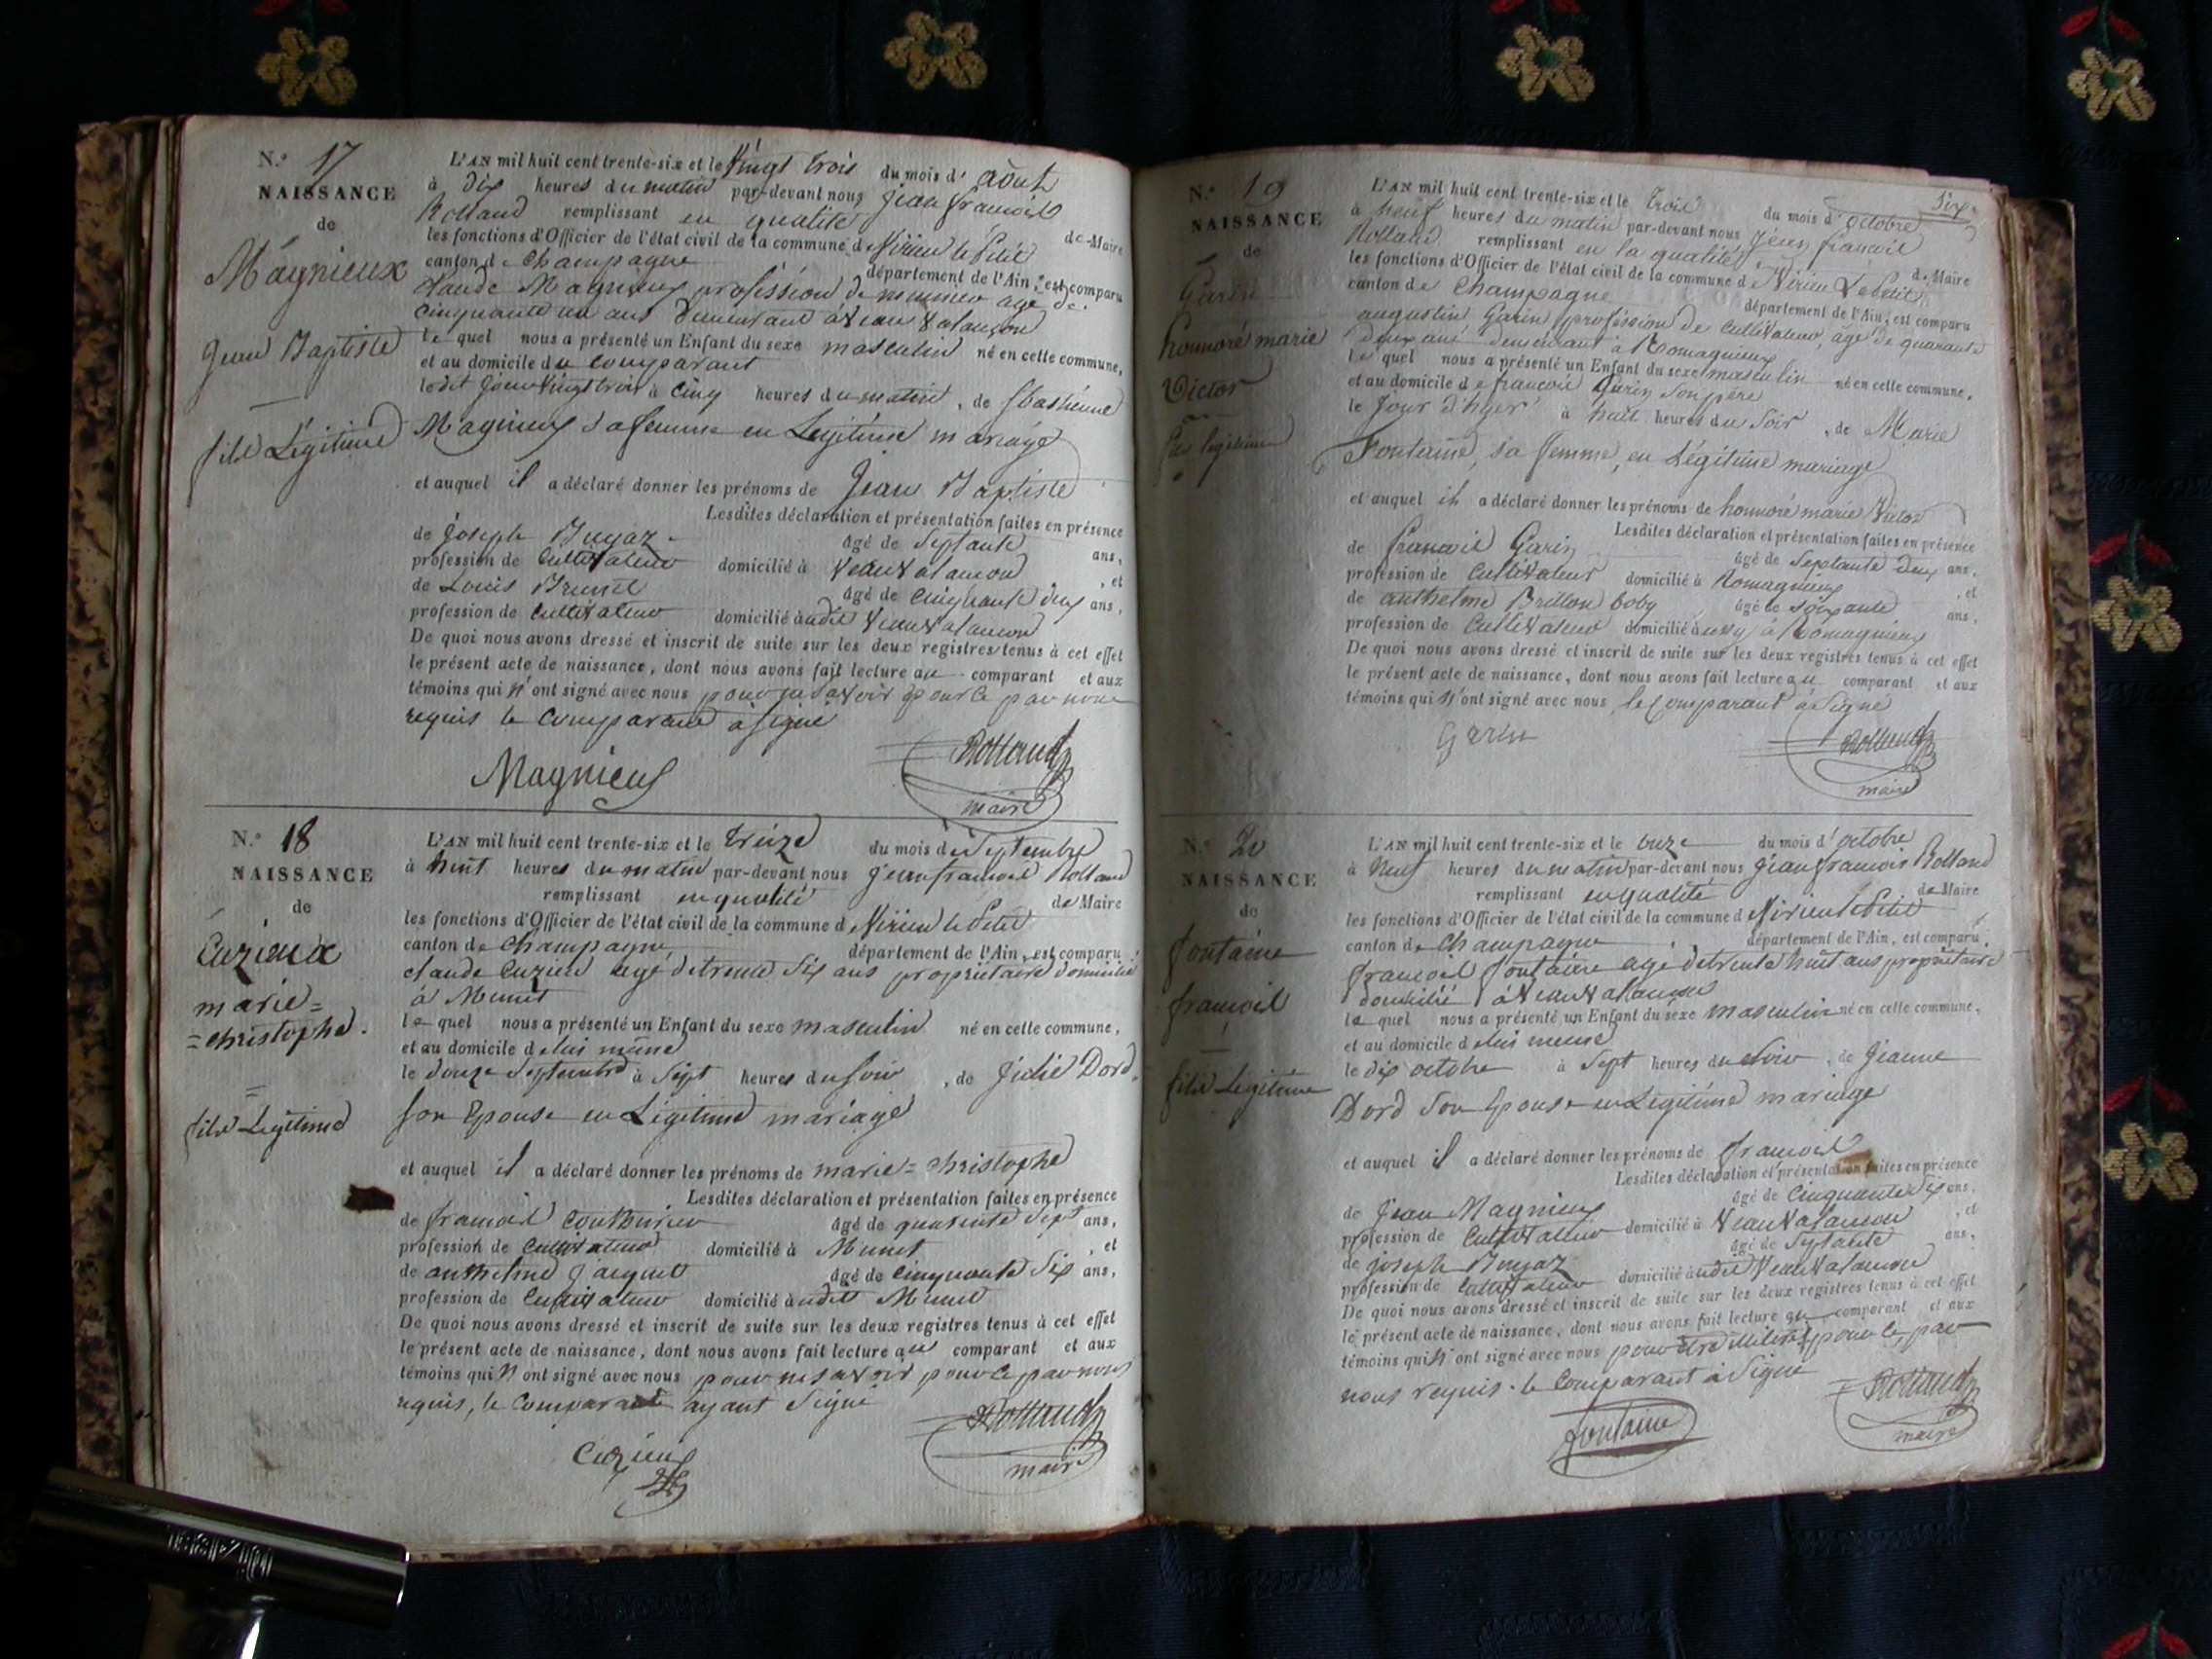 N.o 17
NAISSANCE
de
Magnieux
Jean Baptiste
fils Légitime
L'AN mil huit cent trente-six et le Vingt trois du mois d' août
à dix heures du matin par-devant nous Jean françois
Rolland remplissant en qualité de Maire
les fonctions d'Officier de l'état civil de la commune de Virieu le Petit
canton de Champagne département de l'Ain, est comparu
Claude Magnieux profession de meunier age de
cinquante un ans demeurant à Veauvalançon
le quel nous a présenté un Enfant du sexe masculin né en cette commune,
et au domicile du comparant
ledit jour Vingt trois à cinq heures du matin, de
Magnieux sa femme en Legitime mariage
et auquel il a déclaré donner les prénoms de Jean Baptiste
Lesdites déclaration et présentation faites en présence
de Joseph Bugaz âgé de Septante ans,
profession de Cultivateur domicilié à Veauvalancon, et
de Louis Brunet âgé de Cinquante deux ans,
profession de Cultivateur domicilié audit Veauvalancon
De quoi nous avons dressé et inscrit de suite sur les deux registres tenus à cet effet
le présent acte de naissance, dont nous avons fait lecture au comparant et aux
témoins qui n'ont signé avec nous pour ne savoir pour ce par nous
requis le comparant à signé
Magnieux
Rolland
maire
N.o 18
NAISSANCE
de
Cuzieux
marie=
=christophe.
fils Legitime
L'AN mil huit cent trente-six et le treize du mois de Septembre
à huit heures du matin par-devant nous jean françois Rolland
remplissant en qualité de Maire
les fonctions d'Officier de l'état civil de la commune d Virieu le Petit
canton de Champagne département de l'Ain, est comparu
claude Cuzieu agé de trente Six ans propriétaire domicilié
à Munet
le quel nous a présenté un Enfant du sexe masculin né en cette commune,
et au domicile de lui même
le douze Septembre à Sept heures du soir, de Julie Dord
son Epouse en Légitime mariage
et auquel il a déclaré donner les prénoms de marie=christophe
Lesdites déclaration et présentation faites en présence
de françois Couthurier âgé de quarente Sept ans,
profession de Cultivateur domicilié à Munet, et
de anthelme Jacquet âgé de Cinquante Six ans,
profession de Cultivateur domicilié audit Munet
De quoi nous avons dressé et inscrit de suite sur les deux registres tenus à cet effet
le présent acte de naissance, dont nous avons fait lecture au comparant et aux
témoins qui n'ont signé avec nous pour ne savoir pour ce par nous
requis, le Comparant ayant Signé
Cuzieux
Rolland
maire
Six
N.o 19
NAISSANCE
de
Garin
honnoré marie
Victor
fils légitime
L'AN mil huit cent trente-six et le trois du mois d'octobre
à neuf heures du matin par-devant nous Jean françois
Rolland remplissant en la qualité de Maire
les fonctions d'Officier de l'état civil de la commune de Virieu Le Petit
canton de Champagne département de l'Ain, est comparu
augustin Garin profession de Cultivateur, âgé de quarante
deux ans demeurant à Romagnieux
le quel nous a présenté un Enfant du sexe masculin né en cette commune,
et au domicile de françois Garin son père
le Jour d'hyer à huit heures du Soir, de Marie
Fontaine, sa femme, en Légitime mariage
et auquel il a déclaré donner les prénoms de honnoré marie Victor
Lesdites déclaration et présentation faites en présence
de françois Garin âgé de Septante deux ans,
profession de Cultivateur domicilié à Romagnieux, et
de anthelme Brillon boby âgé de soixante ans,
profession de Cultivateur domicilié aussy à Romagnieux
De quoi nous avons dressé et inscrit de suite sur les deux registres tenus à cet effet
le présent acte de naissance, dont nous avons fait lecture au comparant et aux
témoins qui n'ont signé avec nous le Comparant à Signé
Garin
Rolland
maire
N.o 20
NAISSANCE
de
fontaine
françois
fils Legitime
L'AN mil huit cent trente-six et le onze du mois d'octobre
à neuf heures du matin par-devant nous Jean françois Rolland
remplissant en qualité de Maire
les fonctions d'Officier de l'état civil de la commune d Virieu le Petit
canton de Champagne département de l'Ain, est comparu
françois fontaine agé de trente huit ans propriétaire
domicilié à Veauvalancon
le quel nous a présenté un Enfant du sexe masculin né en cette commune,
et au domicile de lui même
le dix octobre à Sept heures du Soir, de Jeanne
Dord Son Epouse en Legitime mariage
et auquel il a déclaré donner les prénoms de françois
Lesdites déclaration et présentation faites en présence
de Jean Magnieux âgé de Cinquante Six ans,
profession de Cultivateur domicilié à Veauvalancon, et
de joseph Bugaz âgé de Septante ans,
profession de Cultivateur domicilié audit Veauvalancon
De quoi nous avons dressé et inscrit de suite sur les deux registres tenus à cet effet
le présent acte de naissance, dont nous avons fait lecture au comparant et aux
témoins qui n'ont signé avec nous pour être illitérés pour ce par
nous requis. le Comparant à Signé
fontaine
Rolland
maire